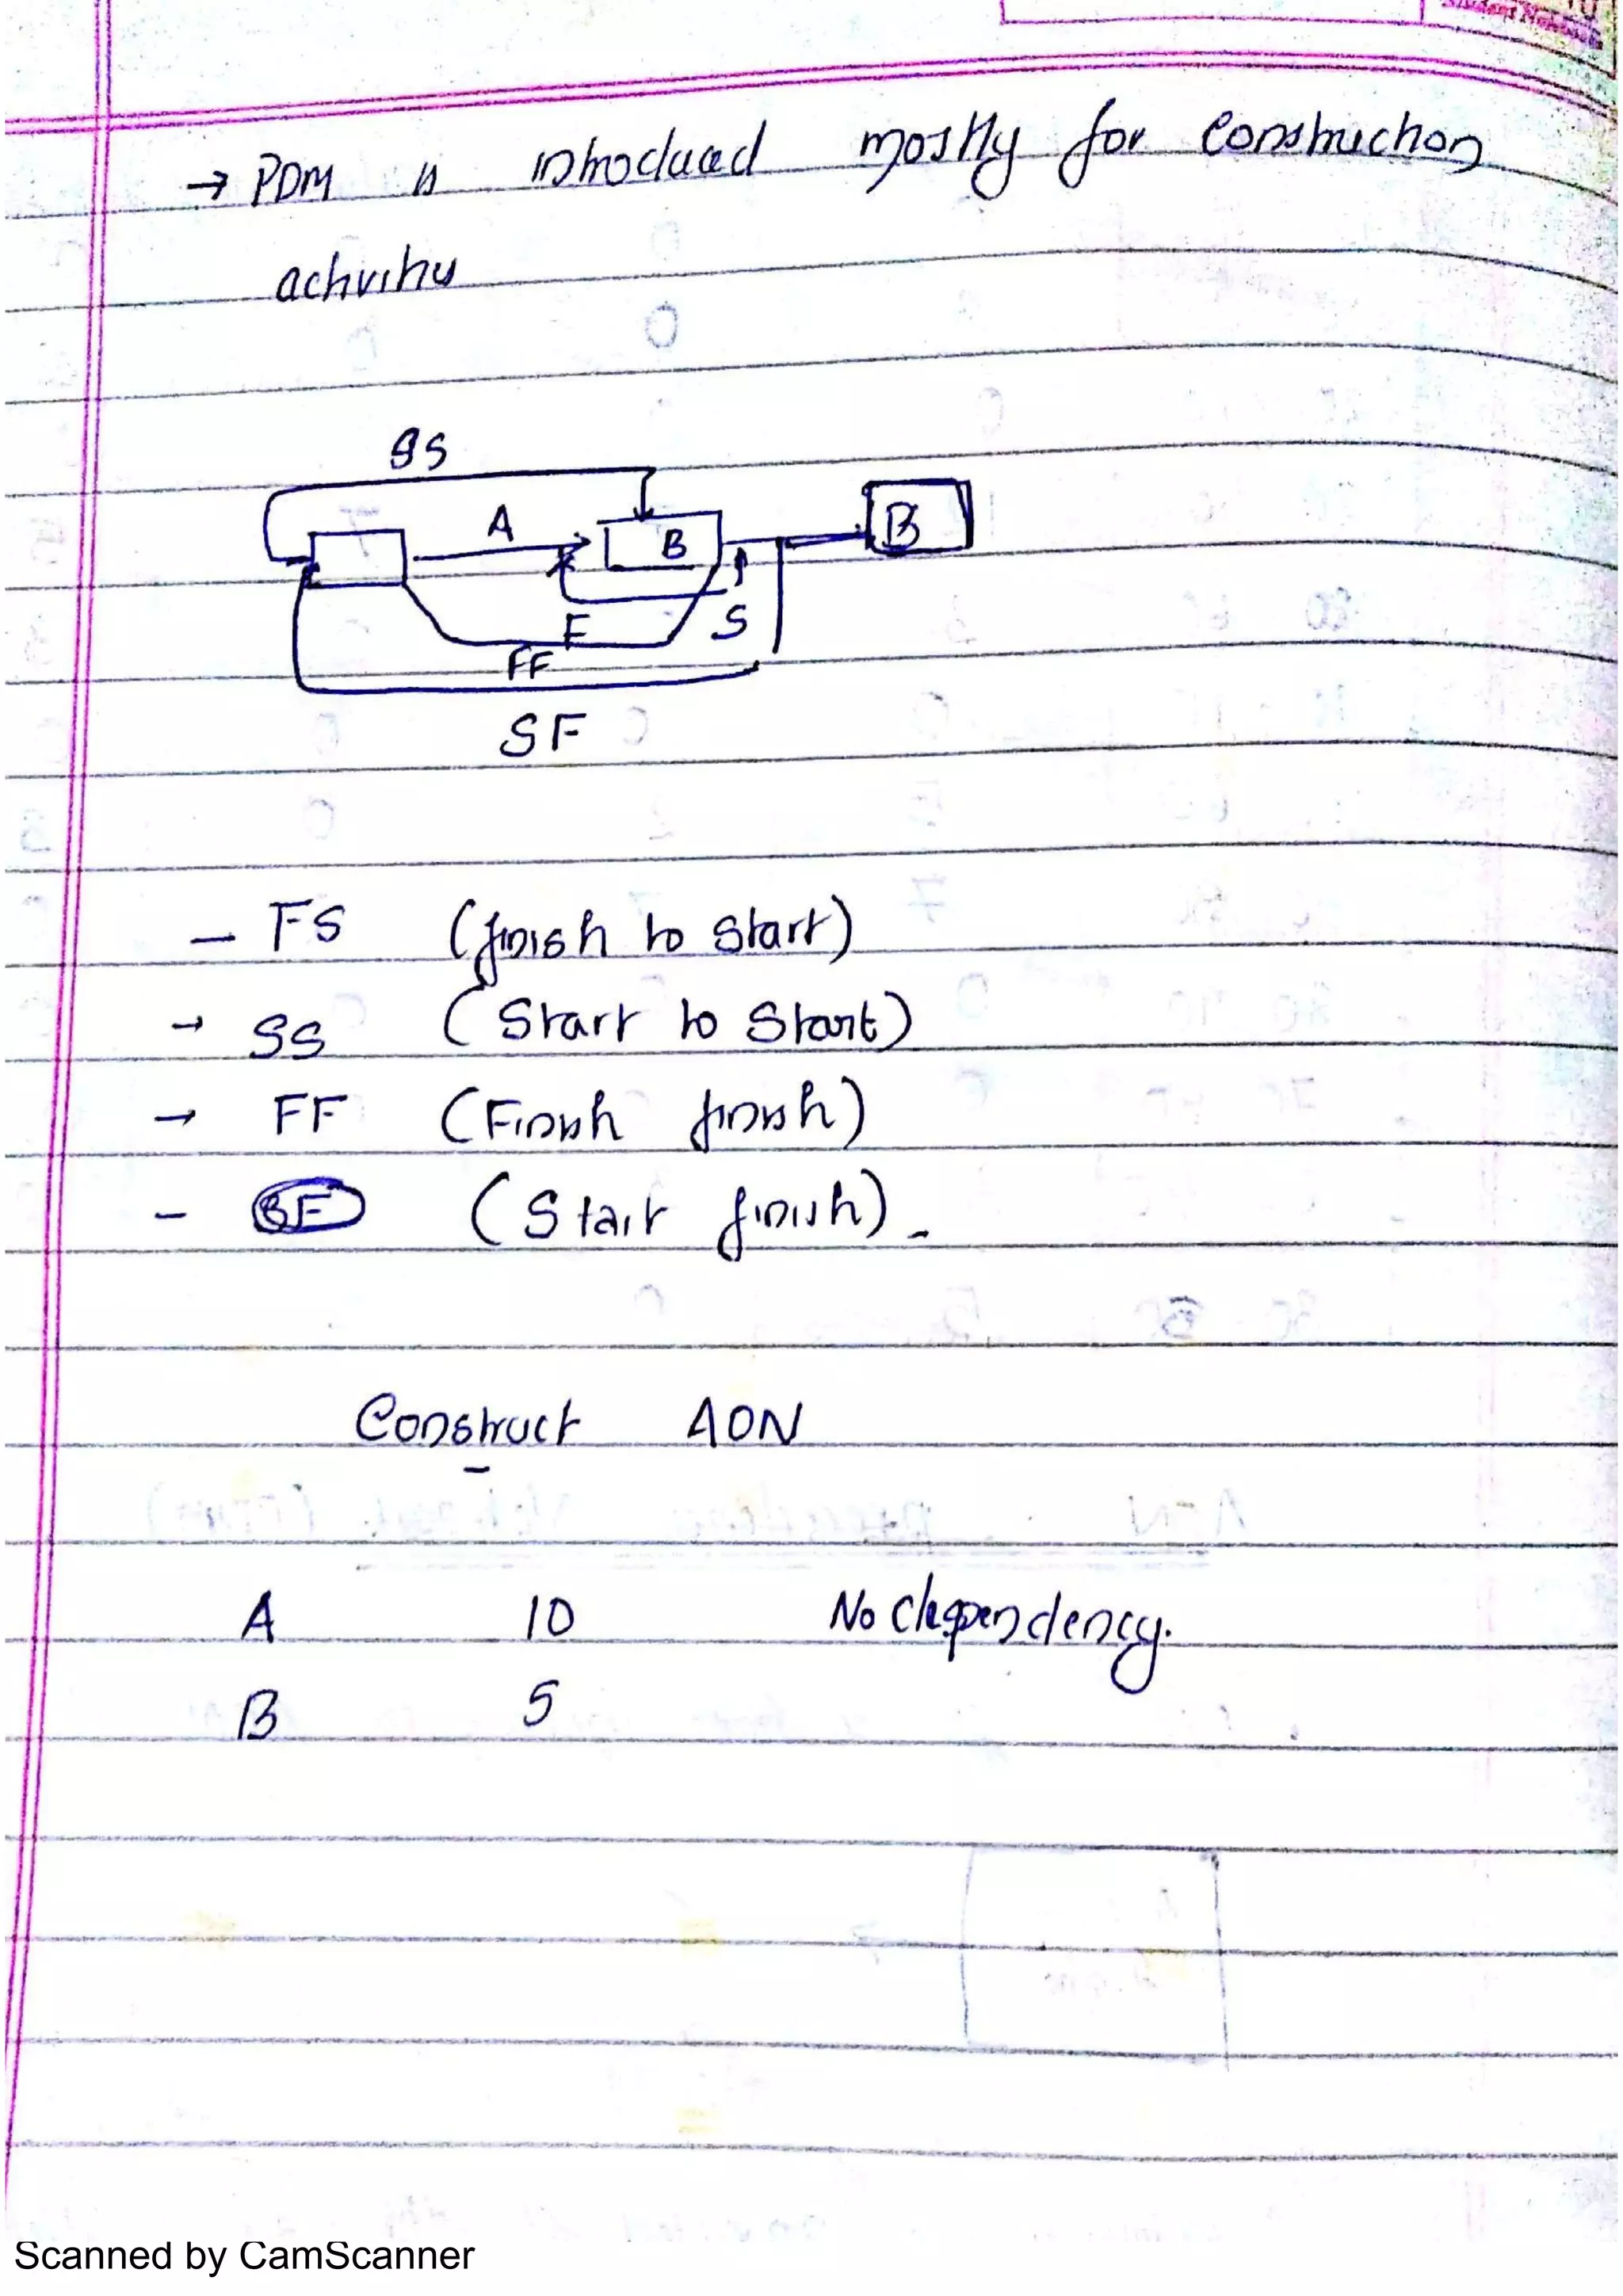 → PDM is introduced mostly for construction
activities
SS
A
B
B
F
S
FF
SF
- FS (finish to start)
→ SS (Start to Start)
→ FF (Finish finish)
- SF (Start finish).
Construct AON
A 10 No dependency.
B 5
Scanned by CamScanner